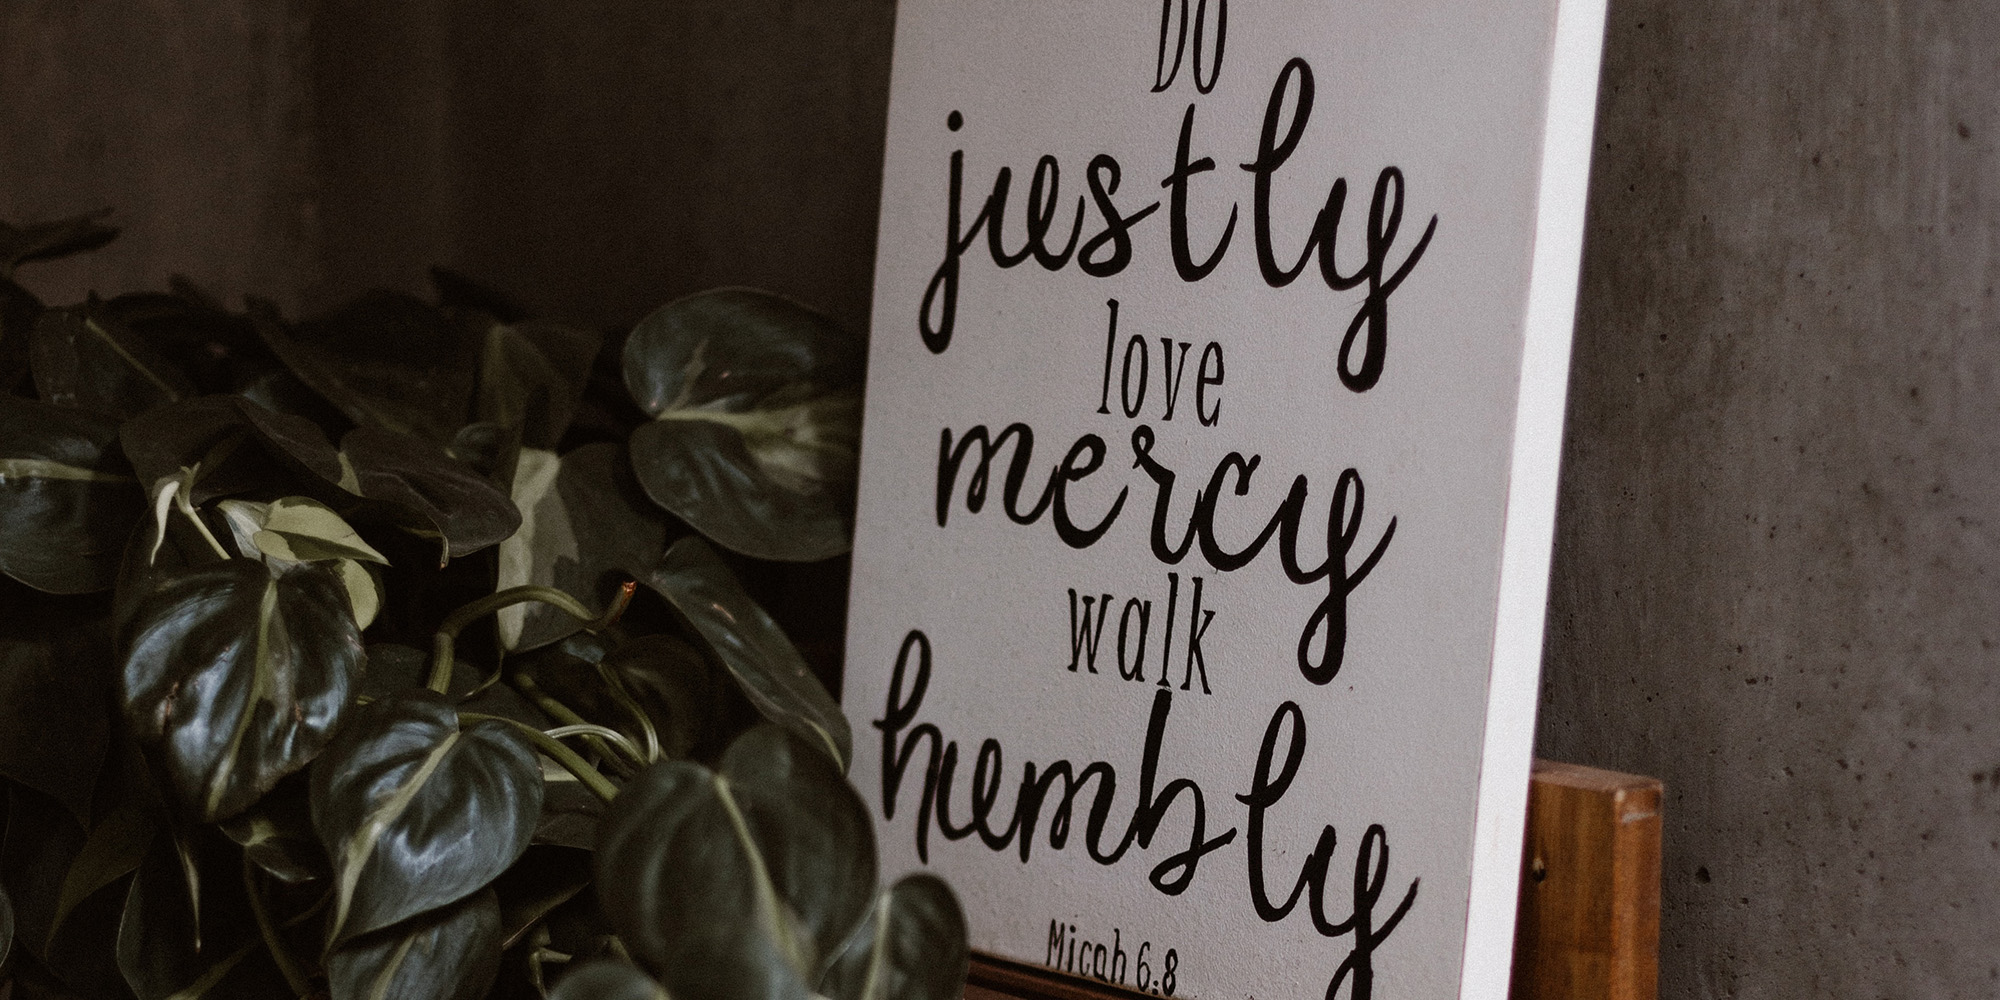 DO
justly
love
mercy
walk
humbly
Micah 6:8